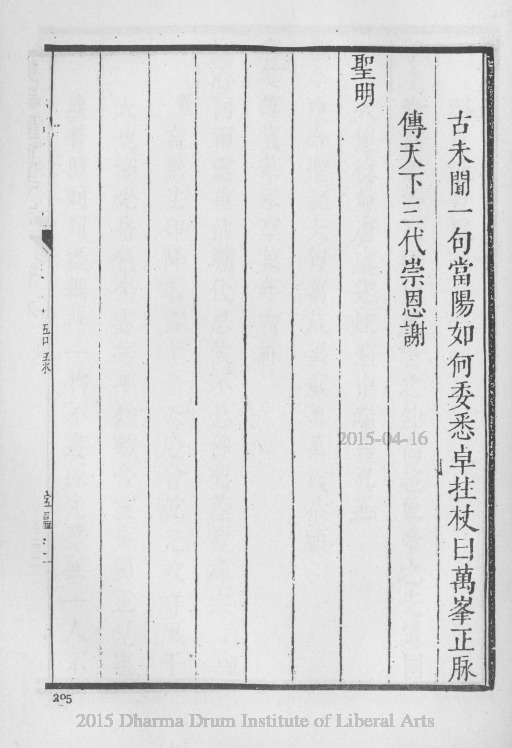 古未聞一句當陽如何委悉卓拄杖曰萬峯正脉
傳天下三代崇恩謝
聖明
語錄
2015-04-16
205
2015 Dharma Drum Institute of Liberal Arts